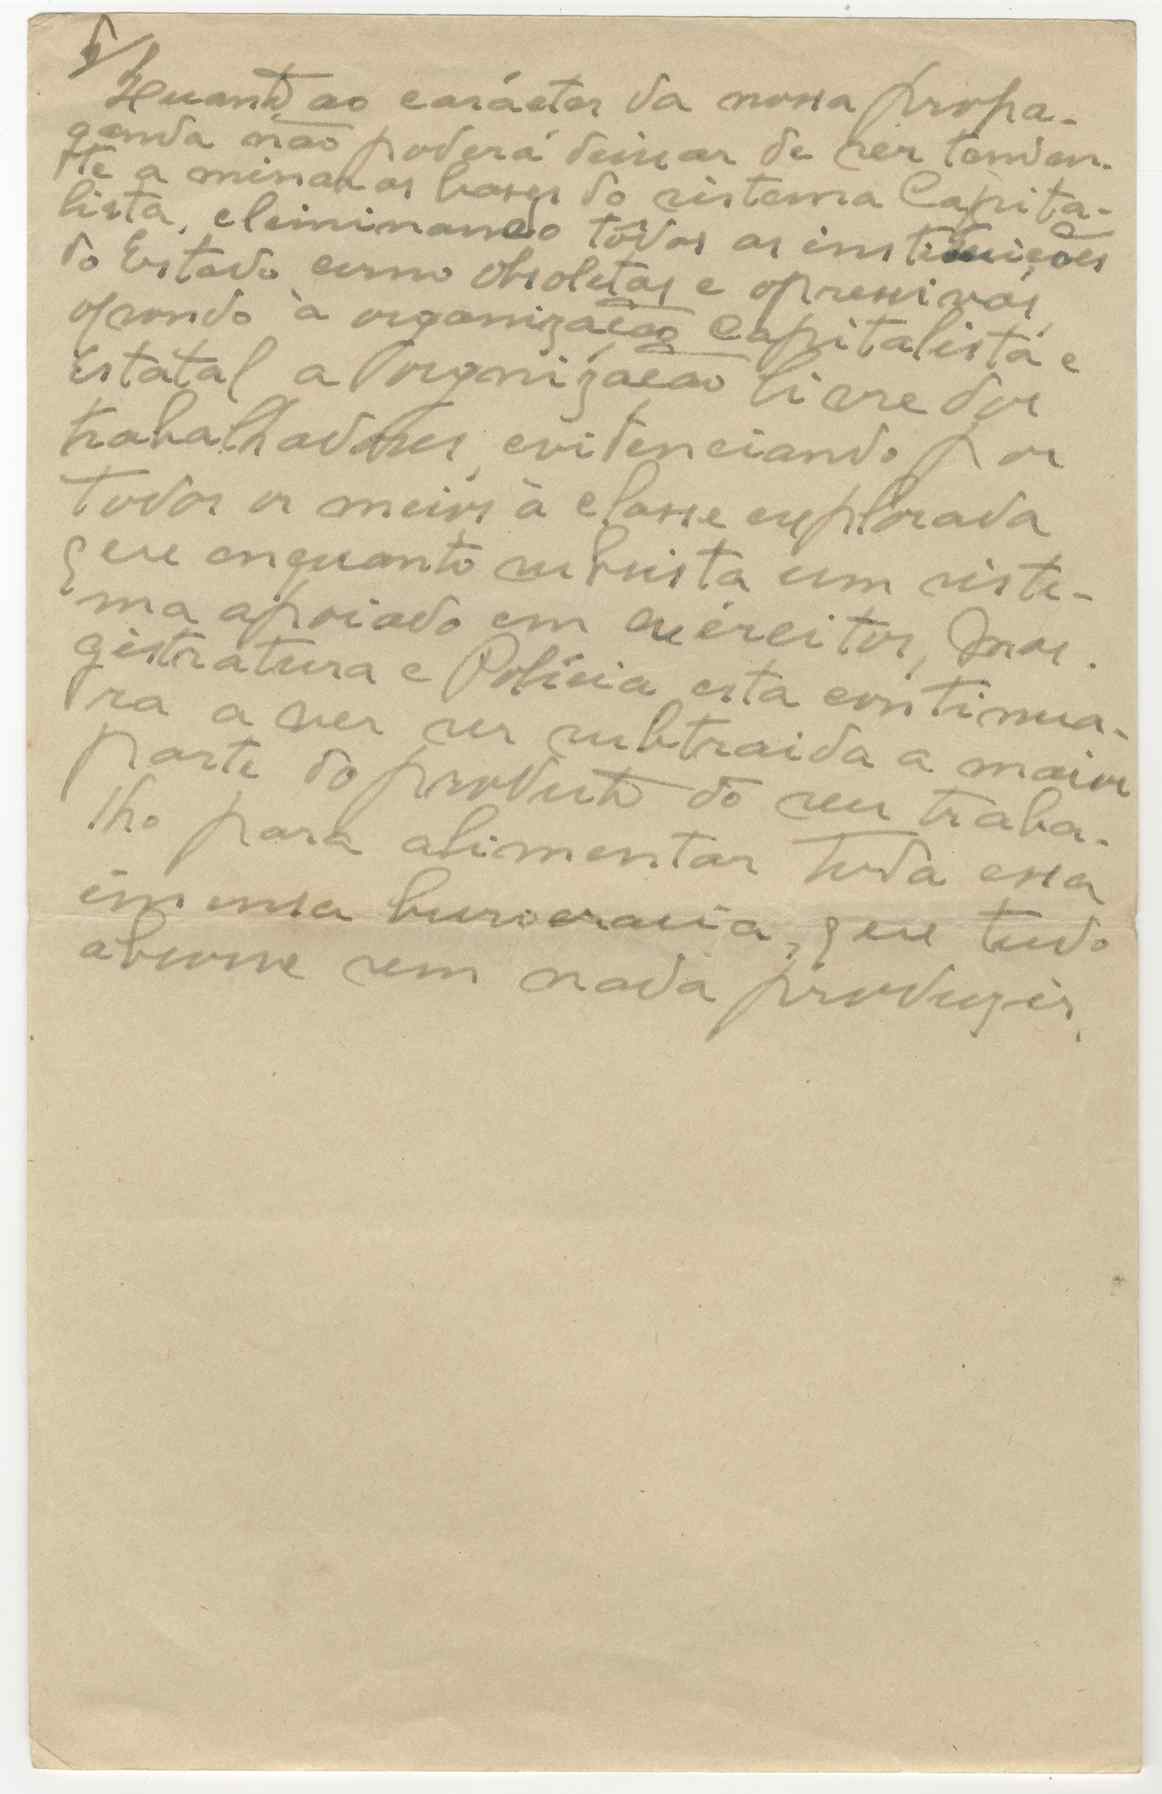 Quanto ao carácter da nossa propa-
ganda não poderá deixar de ser tenden-
te a minar as bases do sistema Capita-
lista, eliminando tôdas as instituições
do Estado como obsoletas e opressivas,
opondo à organização Capitalista e
Estatal a organização livre dos
trabalhadores, evidenciando por
todos os meios à classe explorada
que enquanto subsista um siste-
ma apoiado em exércitos, Ma-
gistratura e Polícia esta continua-
ra a ver ser subtraida a maior
parte do producto do seu traba-
lho para alimentar toda essa
imensa burocracia, que tudo
absorve sem nada produzir.